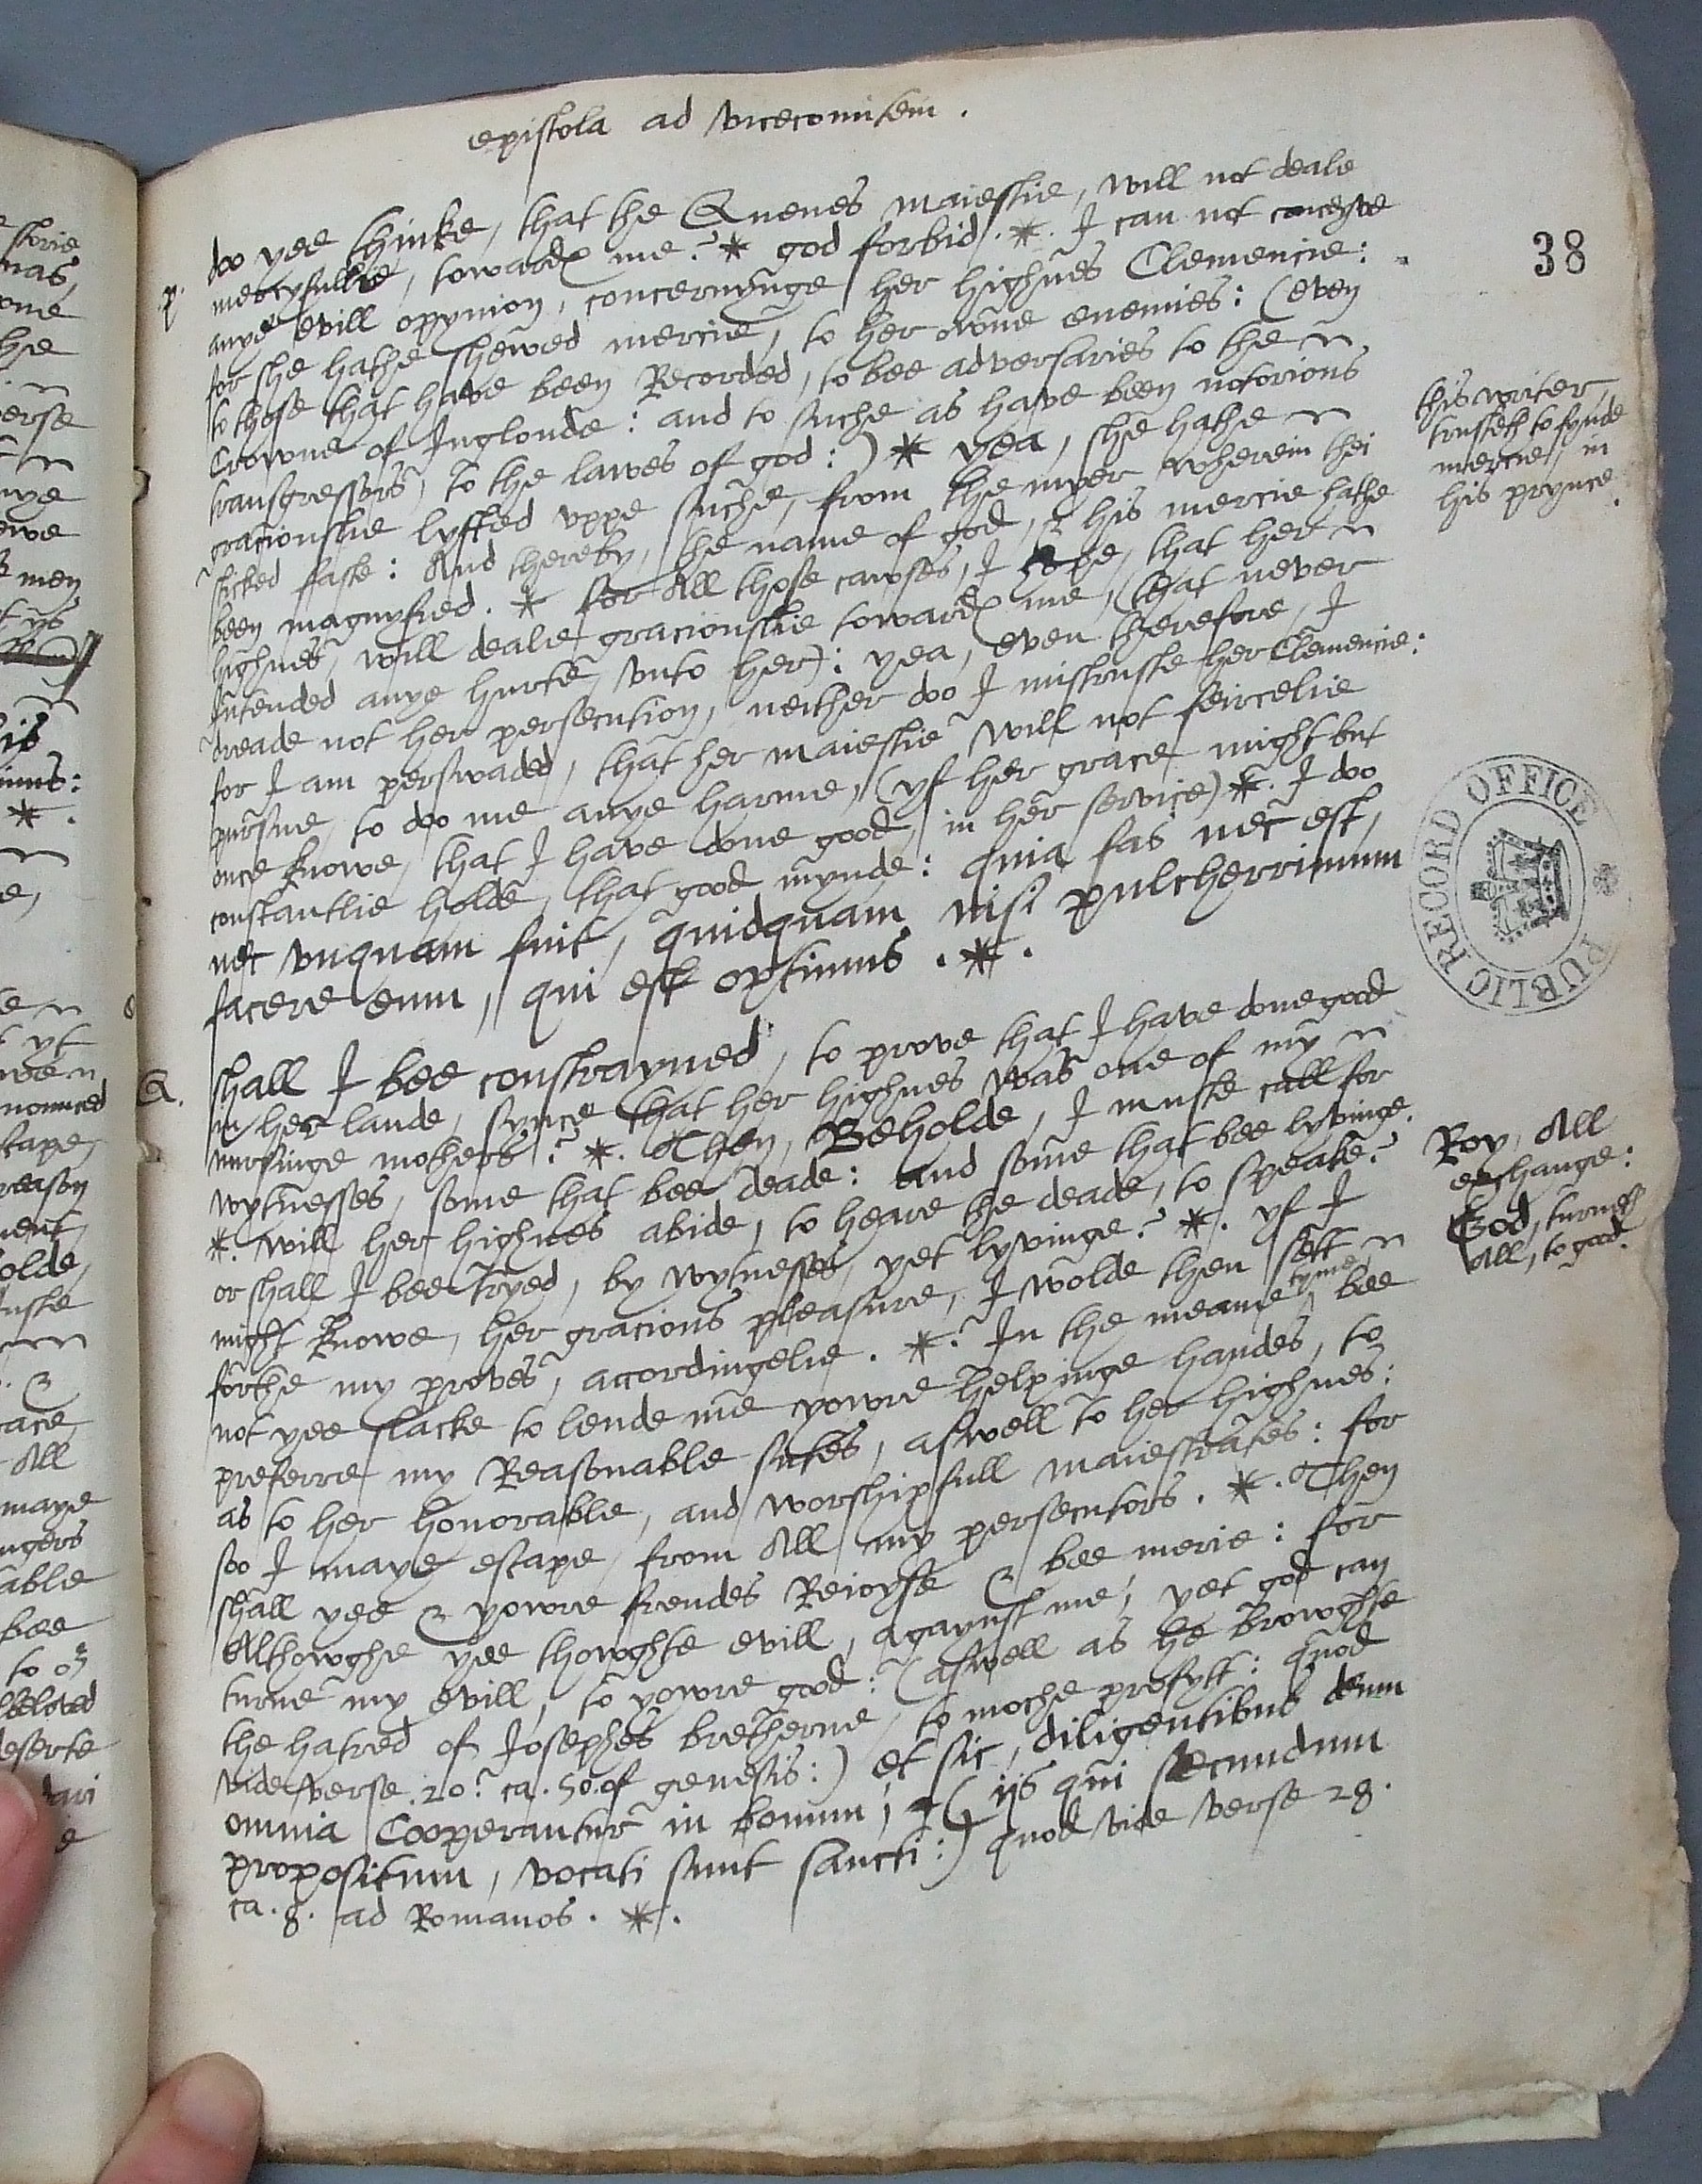 epistola ad vicecomitem .
38
p. doo yee thinke, that the Quenes maiestie, will not deale
mercyfullie, towardes me? * god forbid. *. I can not conceyve
anye evill oppynion, concernynge her highnes Clemencie:
for she hathe shewed mercie, to her owne enemies: (even
to those that have been Recorded, to bee adversaries to the
Crowne of Inglonde: and to suche as have been notorious
transgressors, to the lawes of god:) * yea, she hathe
graciouslie lyfted uppe suche, from the myer wherein thei
sticked faste: And thereby, the name of god, & his mercie hathe
been magnyfied. * for All those cawses, I hope, that her
highnes, will deale graciouslie towardes me, (that never
Intended anye hurte, unto her): yea, even therefore, I
dreade not her persecution, neither doo I mistruste her Clemencie:
for I am perswaded, that her maiestie will not feircelie
pursue, to doo me anye harme, (yf her grace might but
once knowe, that I have done good, in her service) *. I doo
constantlie holde, that good mynde: quia fas nec est,
nec unquam fuit, quidquam nisi pulcherrimum
facere eum, qui est optimus . * .
this writer
trusteth to fynde
mercie, in
his prynce.
PUBLIC RECORD OFFICE
Q. shall I bee constrayned, to prove that I have done good
in her lande, synce that her highnes was one of my
nursinge mothers? *. Then, Beholde, I muste call for
wytnesses, some that bee deade: and some that bee lyvinge.
*. will her highnes abide, to heare the deade, to speake?
or shall I bee tryed, by wytnesses, yet lyvinge? *. yf I
might knowe, her gracious pleasure, I wolde then sett
forthe my proves, accordingelie. *. In the meane tyme bee
not yee slacke to lende me yowre helpinge handes, to
preferre my Reasonable sutes, aswell to her highnes:
as to her honorable, and worshipfull maiestrates: for
soo I maye escape, from All my persecutors. *. Then
shall yee & yowre frendes Reioyse & bee merie: for
Althowghe yee thowghte evill, agaynst me, yet god can
turne my evill, to yowre good: (aswell as he browghte
the hatred of Josephes bretherne, to moche profytt: quod
vide verse. 20. ca. 50. of genesis:) et sic, diligentibus deum
omnia Cooperantur in bonum, (iis qui secundum
propositum, vocati sunt sancti:) quod vide verse 28.
ca. 8. ad Romanos . * .
All
exchange:
God, turneth
All, to good.